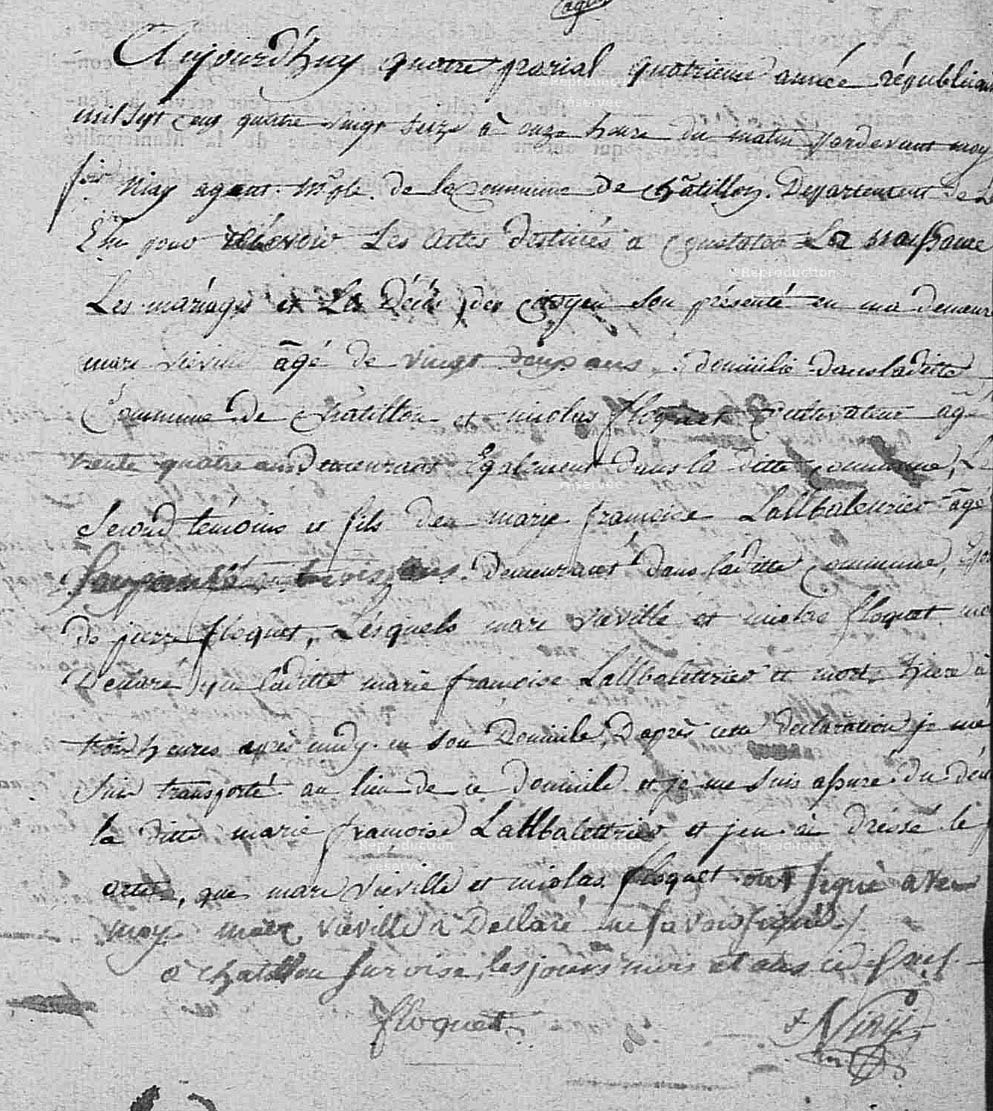 Aujourd'huy quatre prerial quatrieme année républicain
mil sept cens quatre vingt seize à onze heure du matin pardevant moy
Niay agent m^ple de la Commune de Chatillon Departement de L
pour recevoir Les actes destinés a Constater La naissance
Les mariages et Les Décés des Citoyen son présenté en ma demeure
marc vieville âgé de vingt deux ans domicilié dans laditte
Commune de Chatillon et nicolas floquet Cultivateur âgé
trente quatre ans demeurant Egalement dans la ditte Commune, Le
Second témoins et fils de marie françoise Lallbaletrier âgé
soixante trois ans Demeurant dans laditte Commune,
de pierre floquet, Lesquels marc vieville et nicolas floquet mo
Declaré que laditte marie françoise Lallbalettrier et morte hiere à
trois heures après midy en son Domicile, D'après cette declaration je me
suis transporté au lieu de ce domicile et je me suis assuré du déc
la ditte marie françoise Lallbalettrier et jen ai dressé le
acte, que marc vieville et nicolas floquet ont signé avec
moy marc vieville a Declaré ne savoir signé
à chatillon sur oise les jours mois et ans
floquet Niay